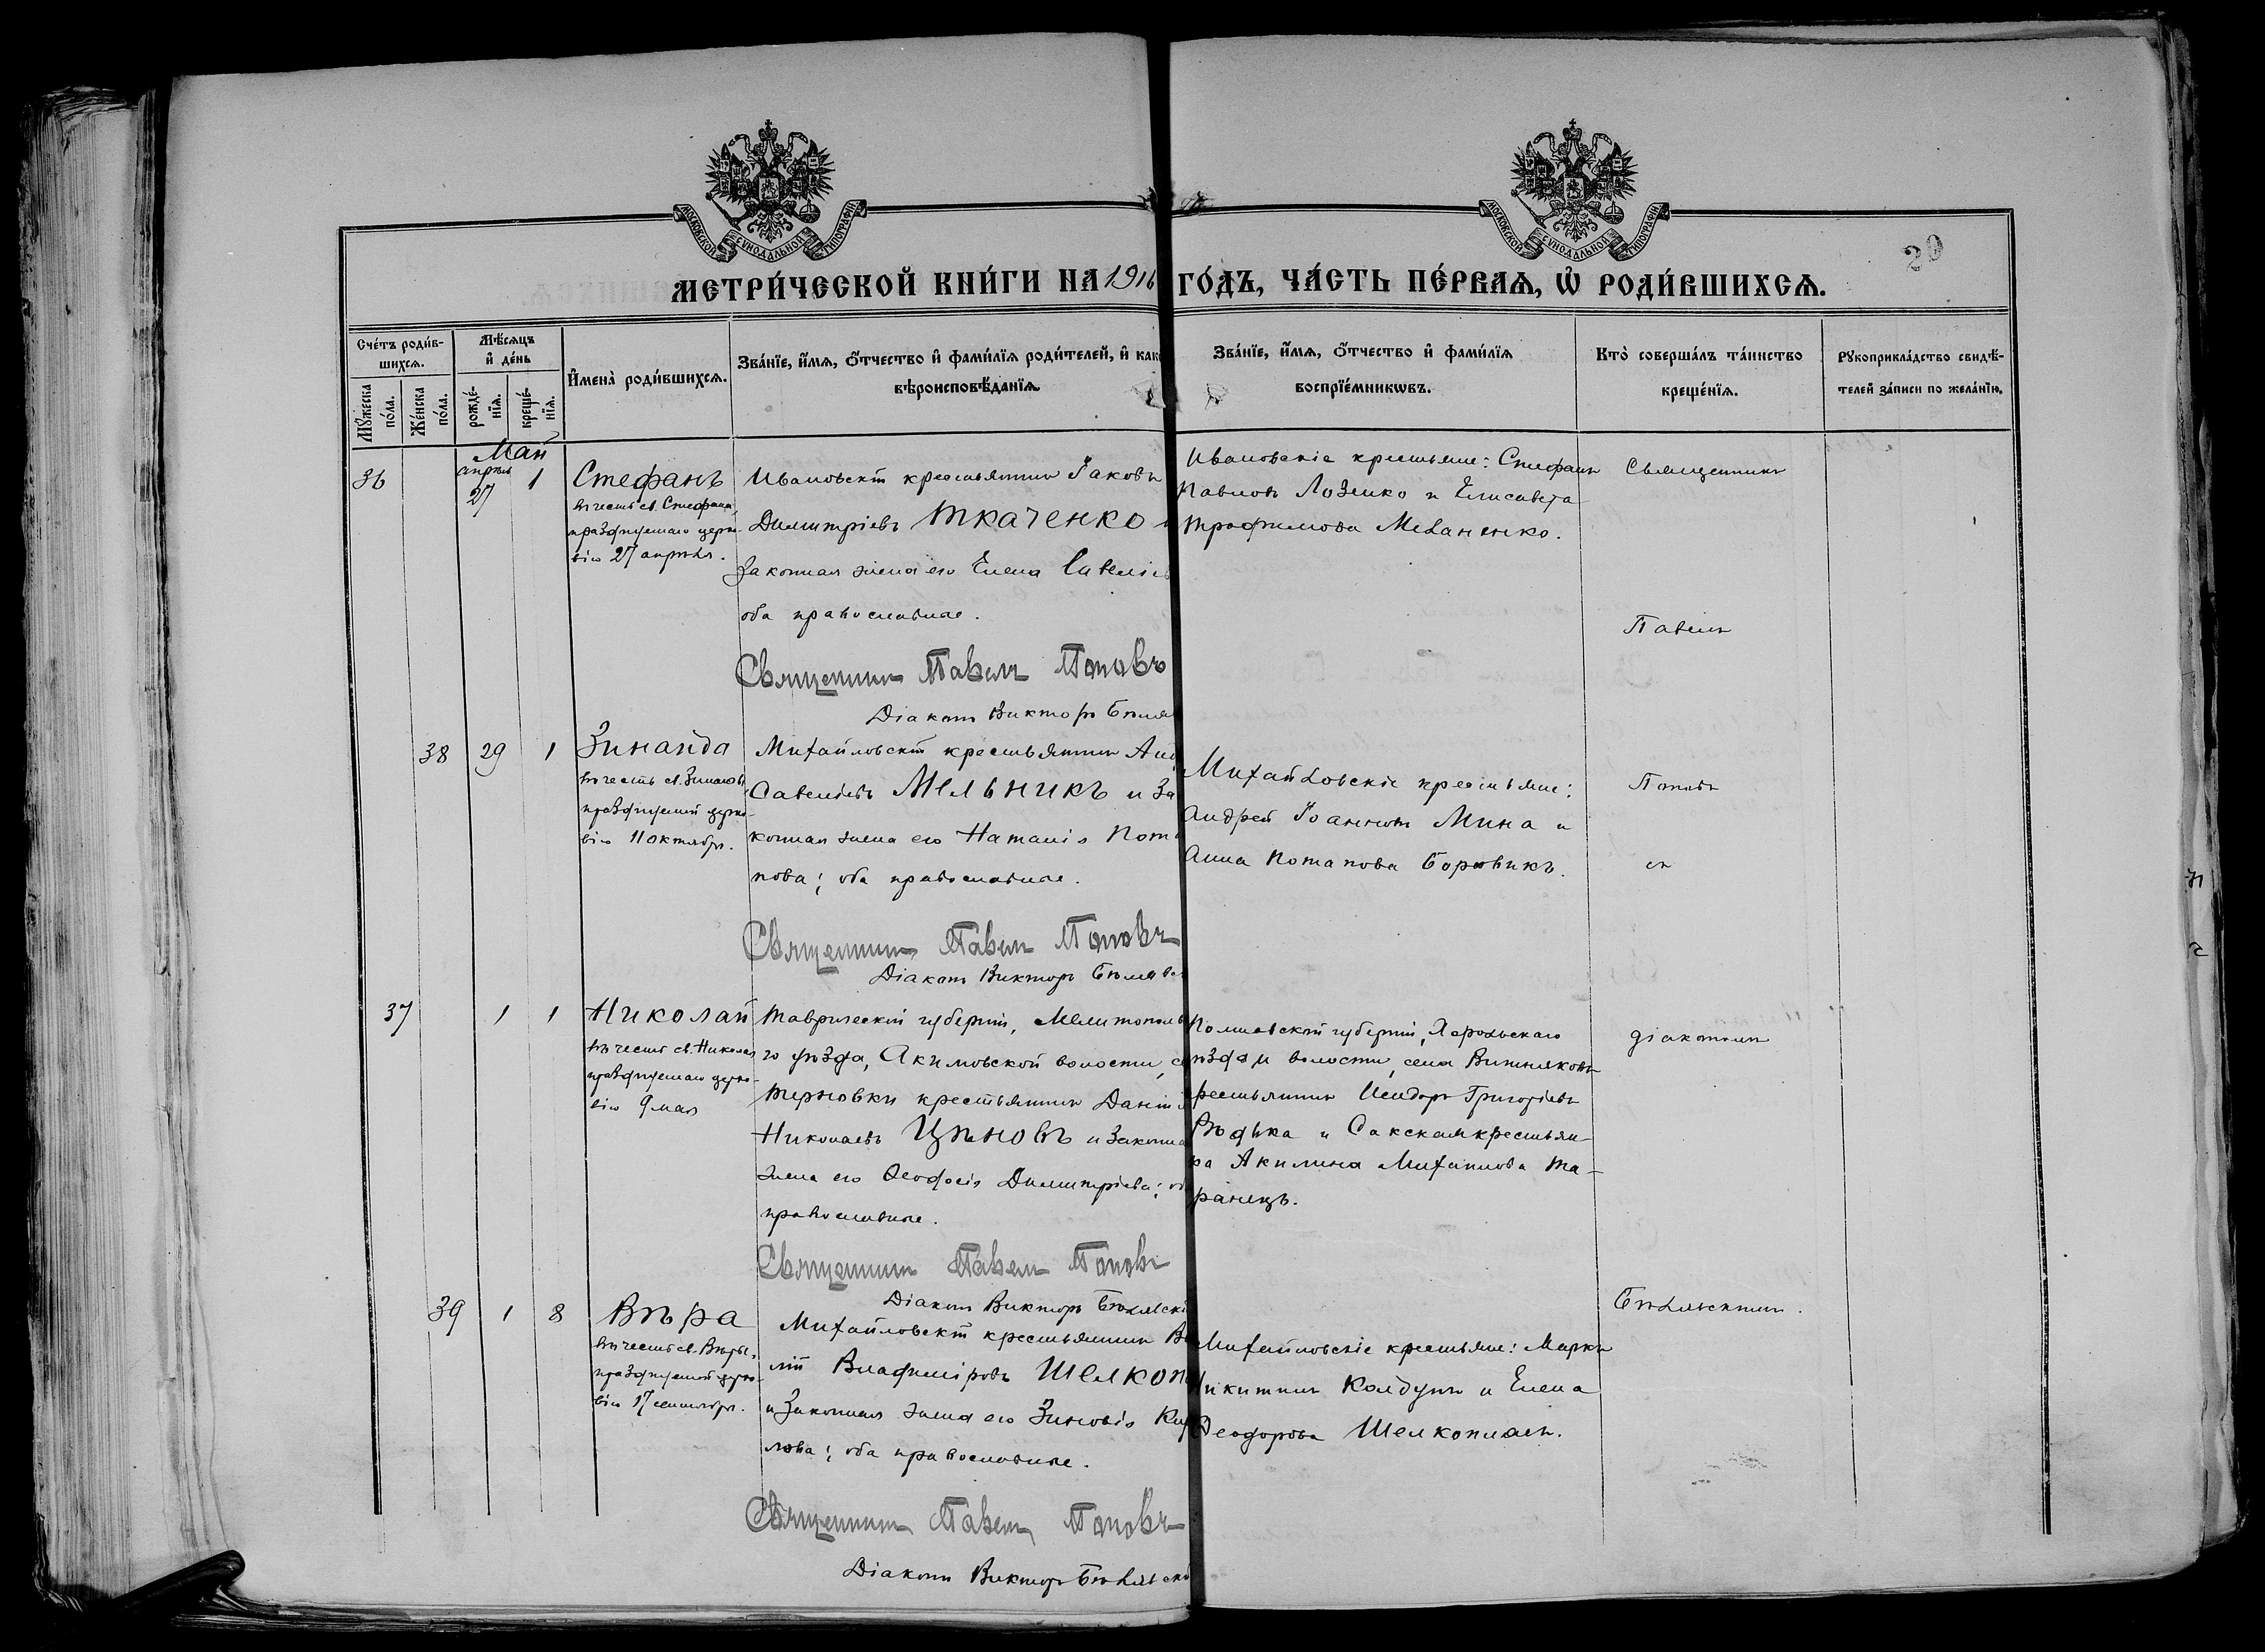 МОСКОВСКОЙ СѴНОДАЛЬНОЙ ТИПОГРАФІИ
МОСКОВСКОЙ СѴНОДАЛЬНОЙ ТИПОГРАФІИ
20
МЕТРИ́ЧЕСКОЙ КНИ́ГИ НА 1916 ГО́ДЪ, ЧА́СТЬ ПЕ́РВАѦ, Ѽ РОДИ́ВШИХСѦ.
Сче́тъ роди́в-
шихсѧ.
Мꙋ́жеска
по́ла.
Же́нска
по́ла.
Мѣ́сѧцъ
и҆ де́нь
рожде́-
нїѧ.
креще́-
нїѧ.
И҆мена̀ роди́вшихсѧ.
Зва́нїе, и҆́мѧ, ѻ҆́тчество и҆ фами́лїѧ роди́телей, и҆ како
вѣроисповѣ́данїѧ.
Зва́нїе, и҆́мѧ, ѻ҆́тчество и҆ фами́лїѧ
воспрїе́мникѡвъ.
Кто̀ соверша́лъ та́инство
креще́нїѧ.
Рꙋкоприкла́дство свидѣ́-
телей за́писи по жела́нїю.
Май
36
апрѣль
27
1
Стефанъ
въ честь св. Стефана,
празднуемаго церко-
вію 27 апрѣля.
Ивановскій крестьянинъ Іаковъ
Димитріевъ Ткаченко и
законная жена его Елена Савеліев
оба православные.
Священникъ Павелъ Поповъ
Діаконъ Викторъ Бѣляв
Ивановскіе крестьяне: Стефанъ
Павловъ Лозенко и Елисавета
Трофимова Меланенко.
Священникъ
Павелъ
38
29
1
Зинаида
въ честь св. Зинаиды,
празднуемой церко-
вію 11 октября.
Михайловскій крестьянинъ
Савеліевъ Мельникъ и За
конная жена его Наталія Пота
пова; оба православные.
Священникъ Павелъ Поповъ
Діаконъ Викторъ Бѣлявск
Михайловскіе крестьяне:
Андрей Іоанновъ Мина и
Анна Потапова Боровикъ.
Поповъ
съ
37
1
1
Николай
въ честь св. Николая
празднуемаго церко-
вію 9 мая
Таврической губерніи, Мелитополь
го уѣзда, Акимовской волости, с
Терновки крестьянинъ Даніи
Николаевъ Цѣновъ и законна
жена его Феодосія Димитріева; об
православные.
Священникъ Павелъ Поповъ
Діаконъ Викторъ Бѣлявскі
Полтавской губерніи, Хорольскаго
уѣзда и волости, села Вишняковъ
крестьянинъ Исидоръ Григоріевъ
Рѣдька и Сакская крестьян-
ка Акилина Михаилова Та-
ранецъ.
діакономъ
39
1
8
Вѣра
въ честь св. Вѣры,
празднуемой церко-
вію 17 сентября.
Михайловскій крестьянинъ Ва
лій Владиміровъ Шелкоп
и законная жена его Зиновія Ки
лова; оба православные.
Священникъ Павелъ Поповъ
Діаконъ Викторъ Бѣлявскі
Михайловскіе крестьяне: Маркъ
Никитинъ Колдунъ и Елена
Феодорова Шелкоплясъ.
Бѣлявскимъ.